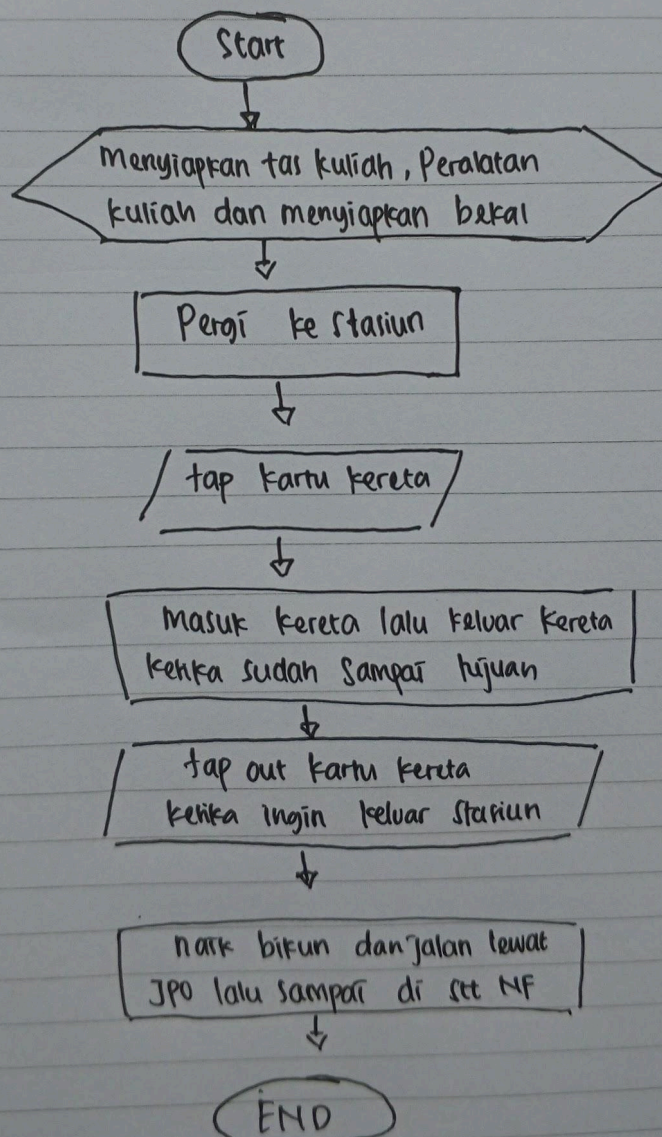 Start
Menyiapkan tas kuliah, Peralatan
kuliah dan menyiapkan bekal
Pergi ke stasiun
tap kartu kereta
masuk kereta lalu keluar kereta
ketika sudah sampai tujuan
tap out kartu kereta
ketika ingin keluar stasiun
naik bikun dan jalan lewat
JPO lalu sampai di stt NF
END